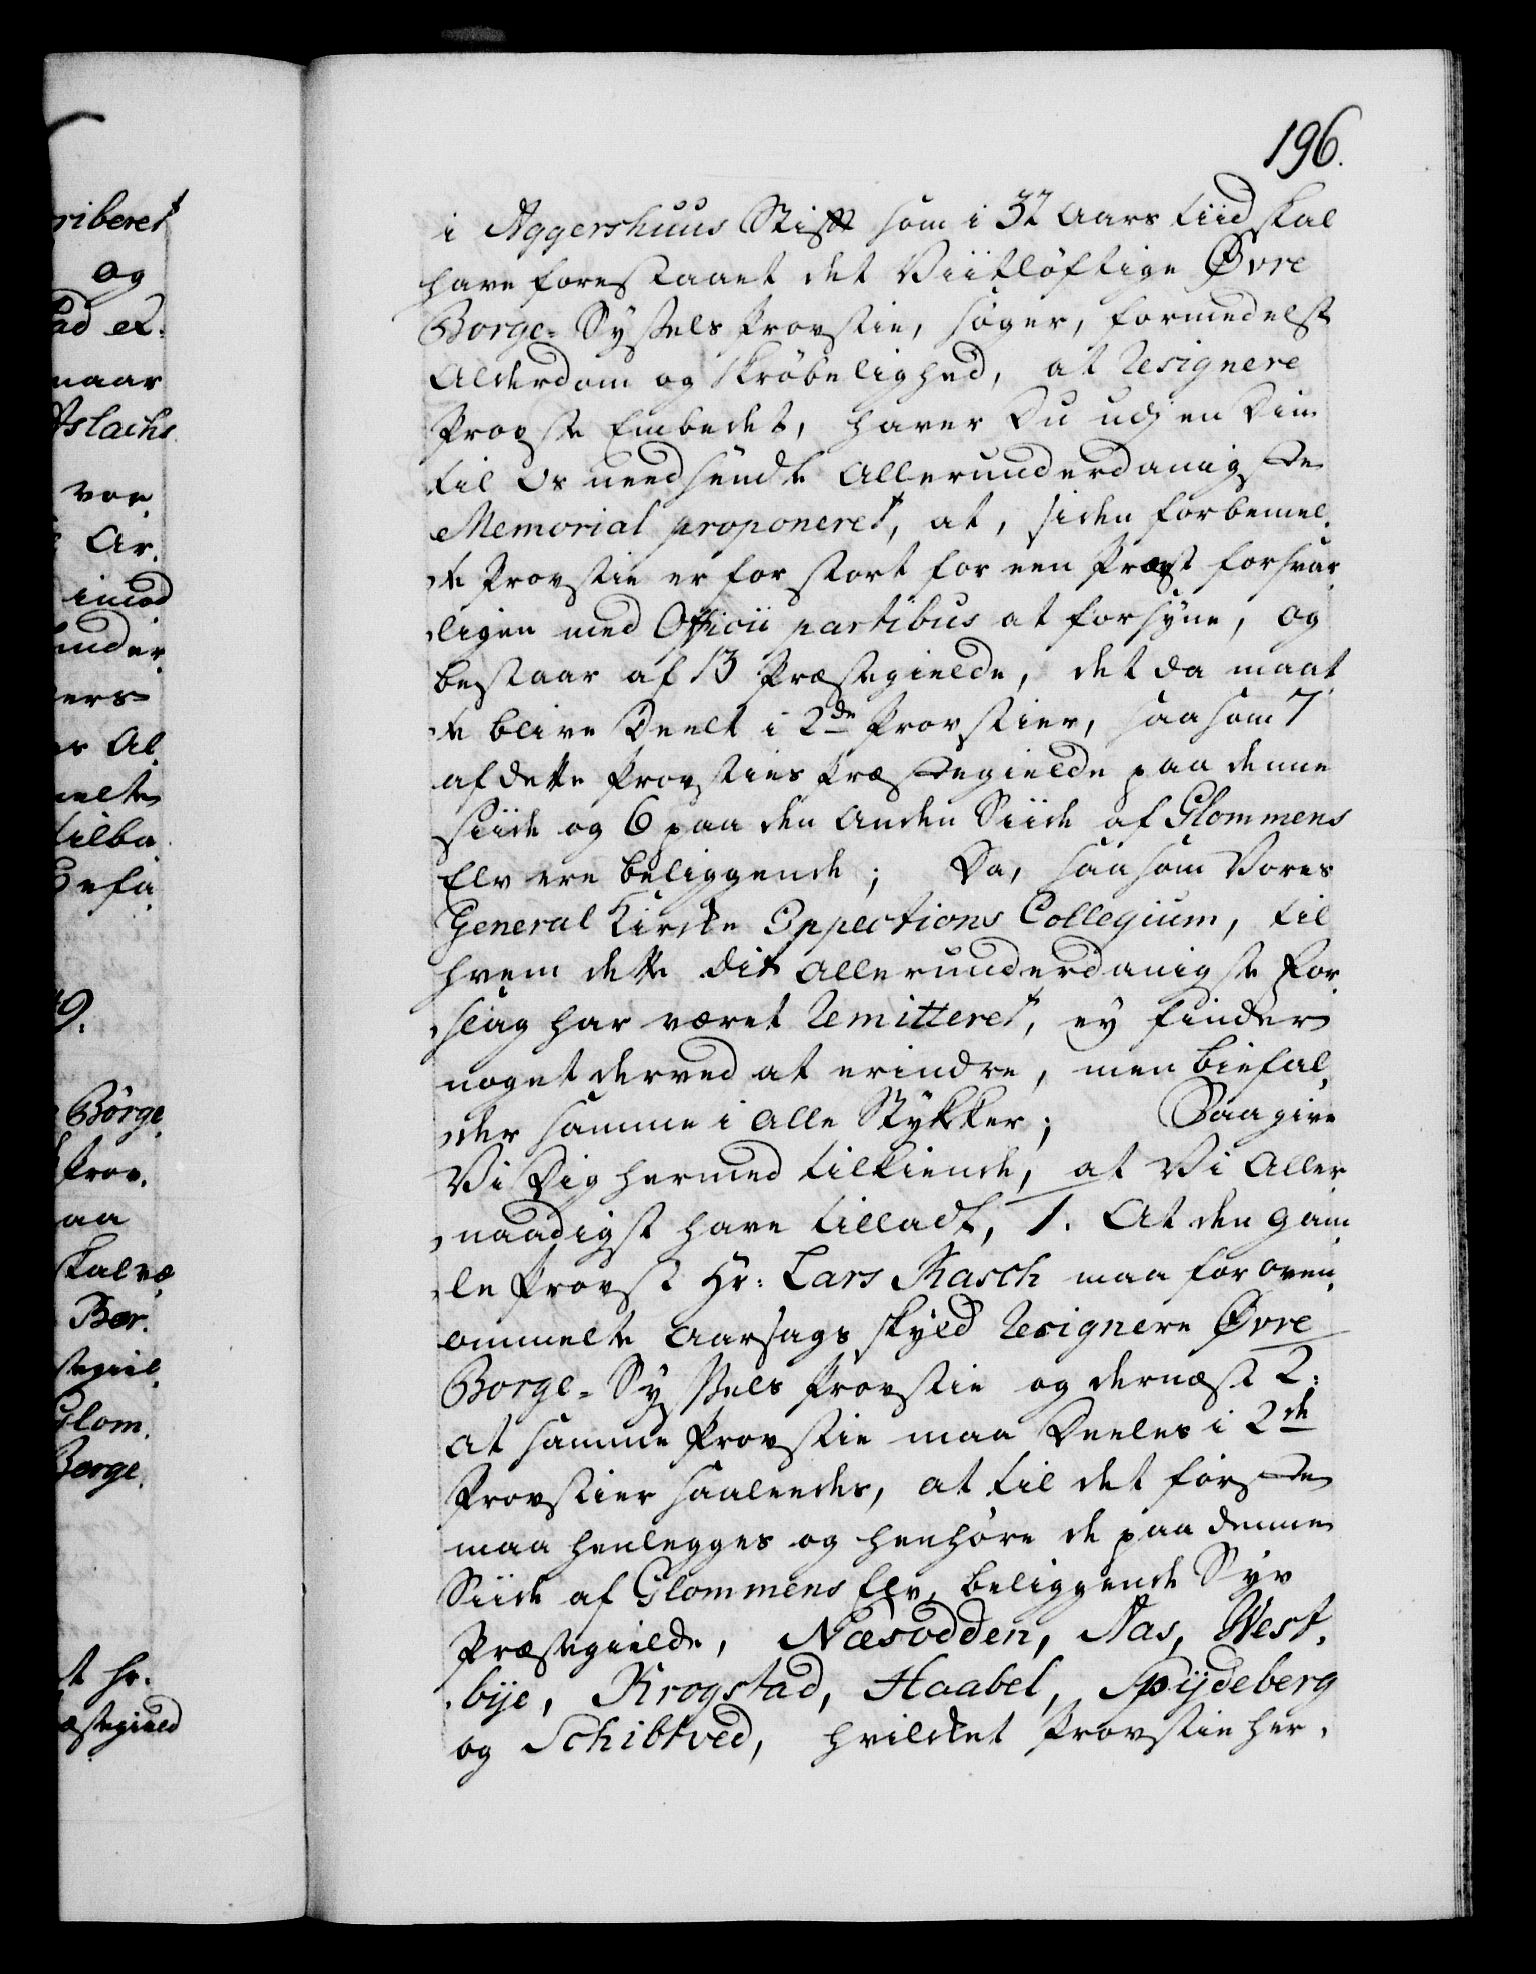 196.
i Aggershuus Stift som i 32 Aars tiid skal
have forestaaet det Viitløftige Øvre
Borge-Syssels Provstie, søger, formedelst
Alderdom og Skrøbelighed, at Resignere
Provste Embedet, haver Du udj en Din
til Os needsendte allerunderdanigste
Memorial proponeret, at, siden forbemel-
te Provstie er for stort for een Provst forsvar-
ligen med Officii partibus at forsyne, og
bestaar af 13 Præstegielde, det da maat-
te blive Deelt i 2de Provstier, saasom 7
af dette Provsties Præstegielde paa denne
Siide og 6 paa den anden Siide af Glommens
Elv ere beliggende; Da, saasom Vores
General Kirke Inspections Collegium, til
hvem dette dit allerunderdanigste For-
slag har været Remitteret, ey finder
noget derved at erindre, men biefal-
der samme i alle Stykker; Saa give
Vi Dig hermed tilkiende, at Vi Aller-
naadigst have tilladt, 1. At den gam-
le Provst Hr: Lars Rasch maa for oven-
ommelte Aarsags skyld Resignere Øvre
Borge-Syssels Provstie og dernæst 2:
At samme Provstie maa Deeles i 2de
Provstier saaleedes, at til det første
maa henlegges og henhøre de paa denne
Siide af Glommens Elv, beliggende Syv
Præstegielde, Næsodden, Aas, West-
bye, Krogstad, Haabel, Spydeberg
og Schibtved, hvilcket Provstie her-
riberet
og
naar
Aslachs
Ar.
imod
tilba
9.
Børge
Prov.
aa
skal væ
Glom.
Borge
t Hr.
æstegield